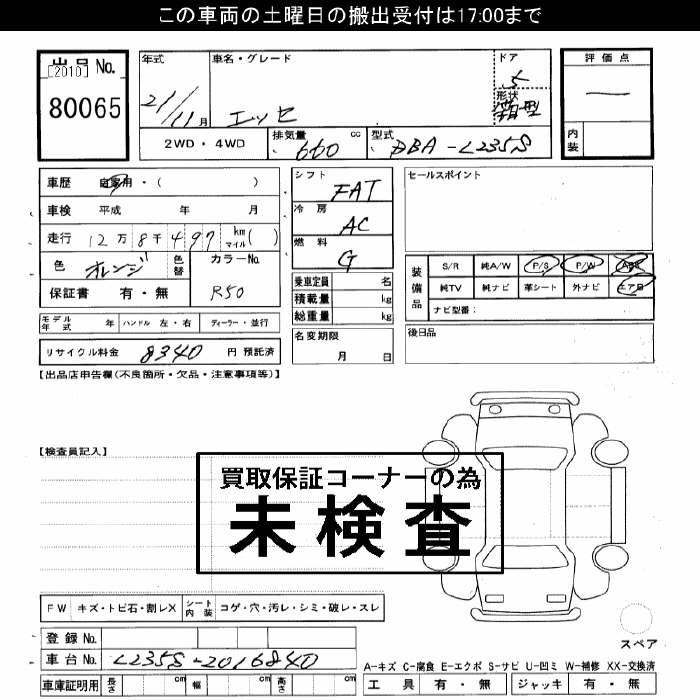 この車両の土曜日の搬出受付は17:00まで
出品No. [2010]
80065
年式 21/11月
車名・グレード エッセ
ドア 5
形状 箱型
評価点 —
内装
2WD・4WD
排気量 660 cc
型式 DBA-L235S
車歴 自家用・( )
車検 平成 年 月
走行 12万8千497 km マイル ( )
色 オレンジ 色替 カラーNo. R50
保証書 有・無
シフト FAT
冷房 AC
燃料 G
乗車定員 名
積載量 kg
総重量 kg
名変期限 月 日
セールスポイント
装備品 S/R 純A/W P/S P/W ABS
純TV 純ナビ 革シート 外ナビ エアB
ナビ型番:
後日品
モデル年式 年 ハンドル 左・右 ディーラー・並行
リサイクル料金 8340 円 預託済
【出品店申告欄(不良箇所・欠品・注意事項等)】
【検査員記入】
買取保証コーナーの為
未検査
FW キズ・トビ石・割レX シート内装 コゲ・穴・汚レ・シミ・破レ・スレ
登録No.
車台No. L235S-2016840
車庫証明用 長さ cm 幅 cm 高さ cm
スペア
A-キズ C-腐食 E-エクボ S-サビ U-凹ミ W-補修 XX-交換済
工具 有・無 ジャッキ 有・無